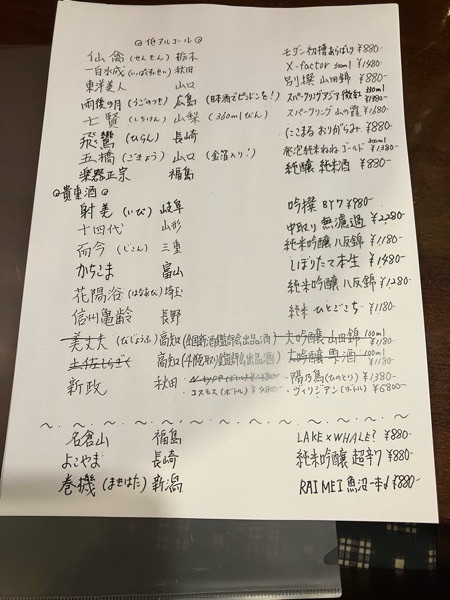 ◎低アルコール◎
仙禽(せんきん) 栃木 モダン初槽あらばしり ¥880-
一白水成(いっぱくすいせい) 秋田 X-factor 300ml ¥1480
東洋美人 山口 別撰 山田錦 ¥880-
雨後の月(うごのつき) 広島(日本酒でピンドンを!) スパークリングアジア微紅 ¥1380-
七賢(しちけん) 山梨(360mlびん) スパークリング 山の霞 ¥1680-
飛鸞(ひらん) 長崎 にこまる おりがらみ ¥880-
五橋(ごきょう) 山口(金箔入り!) 発泡純米ねね ゴールド 300ml ¥1380-
楽器正宗 福島 純醸 純米酒 ¥880-
◎貴重酒◎
射美(いび) 岐阜 吟撰 BY7 ¥880-
十四代 山形 中取り 無濾過 ¥2,280-
而今(じこん) 三重 純米吟醸 八反錦 ¥1180-
かちこま 富山 しぼりたて本生 ¥1,480
花陽浴(はなあび) 埼玉 純米吟醸 八反錦 ¥1,280
信州亀齢 長野 純米 ひとごこち ¥1180-
美丈夫(びじょうふ) 高知(全国新酒鑑評会出品酒) 大吟醸 山田錦 100ml ¥1180
土佐しらぎく 高知 大吟醸 雫酒 100ml ¥1180
新政 秋田 ・陽乃鳥(ひのとり) ¥1380-
コスモス(ボトル) ・ヴィリジアン(ボトル) ¥6800-
石倉山 福島 LAKE×WHALE? ¥880-
よこやま 長崎 純米吟醸 超辛7 ¥880-
巻機(まきはた) 新潟 RAIMEI 魚沼一本〆 ¥880-